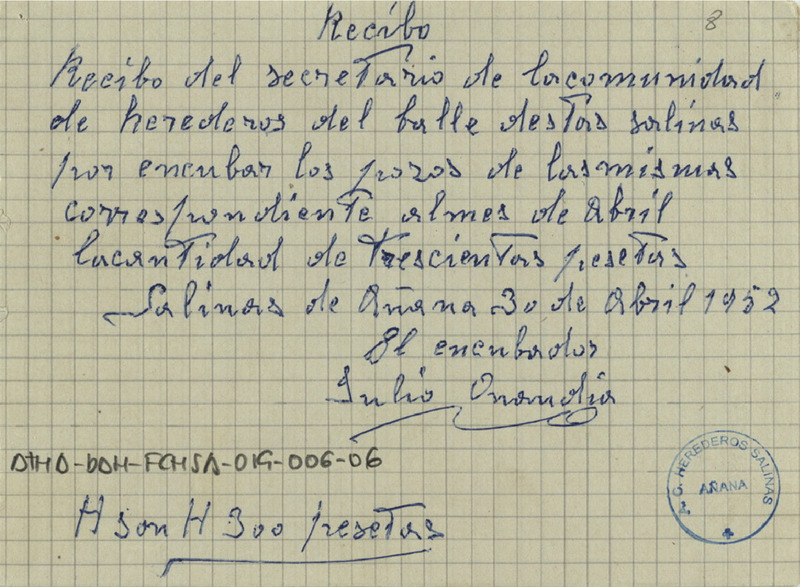 8
Recibo
Recibo del secretario de lacomunidad
de herederos del balle destas salinas
por encubar los pozos de lasmismas
correspondiente almes de Abril
lacantidad de trescientas pesetas
Salinas de Añana 30 de Abril 1952
El encubador
Julio Onandia
ATHA-DDH-FCHSA-019-006-06
# son # 300 pesetas
C. HEREDEROS SALINAS
AÑANA